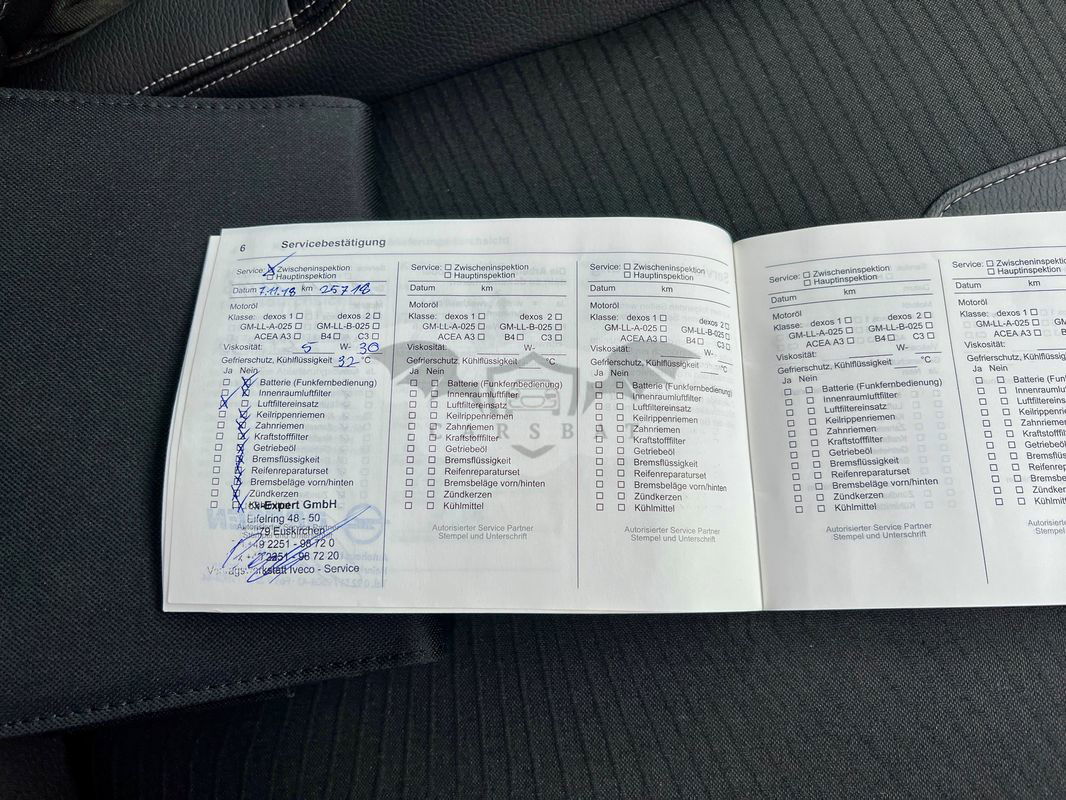 6 Servicebestätigung
Service: ☒ Zwischeninspektion
☐ Hauptinspektion
Datum 7.11.18 km 25718
Motoröl
Klasse: dexos 1 ☐ dexos 2 ☐
GM-LL-A-025 ☐ GM-LL-B-025 ☐
ACEA A3 ☐ B4 ☐ C3 ☐
Viskosität: 5 W- 30
Gefrierschutz, Kühlflüssigkeit 32 °C
Ja Nein
Batterie (Funkfernbedienung)
Innenraumluftfilter
Luftfiltereinsatz
Keilrippenriemen
Zahnriemen
Kraftstofffilter
Getriebeöl
Bremsflüssigkeit
Reifenreparaturset
Bremsbeläge vorn/hinten
Zündkerzen
-Expert GmbH
Eifelring 48 - 50
79 Euskirchen
2251 - 98 72 0
2251 - 98 72 20
Iveco - Service
Service: ☐ Zwischeninspektion
☐ Hauptinspektion
Datum km
Motoröl
Klasse: dexos 1 ☐ dexos 2 ☐
GM-LL-A-025 ☐ GM-LL-B-025 ☐
ACEA A3 ☐ B4 ☐ C3 ☐
Viskosität: W-
Gefrierschutz, Kühlflüssigkeit °C
Ja Nein
☐ ☐ Batterie (Funkfernbedienung)
☐ ☐ Innenraumluftfilter
☐ ☐ Luftfiltereinsatz
☐ ☐ Keilrippenriemen
☐ ☐ Zahnriemen
☐ ☐ Kraftstofffilter
☐ ☐ Getriebeöl
☐ ☐ Bremsflüssigkeit
☐ ☐ Reifenreparaturset
☐ ☐ Bremsbeläge vorn/hinten
☐ ☐ Zündkerzen
☐ ☐ Kühlmittel
Autorisierter Service Partner
Stempel und Unterschrift
Service: ☐ Zwischeninspektion
☐ Hauptinspektion
Datum km
Motoröl
Klasse: dexos 1 ☐ dexos 2 ☐
GM-LL-A-025 ☐ GM-LL-B-025 ☐
ACEA A3 ☐ B4 ☐ C3 ☐
Viskosität: W-
Gefrierschutz, Kühlflüssigkeit °C
Ja Nein
☐ ☐ Batterie (Funkfernbedienung)
☐ ☐ Innenraumluftfilter
☐ ☐ Luftfiltereinsatz
☐ ☐ Keilrippenriemen
☐ ☐ Zahnriemen
☐ ☐ Kraftstofffilter
☐ ☐ Getriebeöl
☐ ☐ Bremsflüssigkeit
☐ ☐ Reifenreparaturset
☐ ☐ Bremsbeläge vorn/hinten
☐ ☐ Zündkerzen
☐ ☐ Kühlmittel
Autorisierter Service Partner
Stempel und Unterschrift
CARSBAT
Service: ☐ Zwischeninspektion
☐ Hauptinspektion
Datum km
Motoröl
Klasse: dexos 1 ☐ dexos 2 ☐
GM-LL-A-025 ☐ GM-LL-B-025 ☐
ACEA A3 ☐ B4 ☐ C3 ☐
Viskosität: W-
Gefrierschutz, Kühlflüssigkeit °C
Ja Nein
☐ ☐ Batterie (Funkfernbedienung)
☐ ☐ Innenraumluftfilter
☐ ☐ Luftfiltereinsatz
☐ ☐ Keilrippenriemen
☐ ☐ Zahnriemen
☐ ☐ Kraftstofffilter
☐ ☐ Getriebeöl
☐ ☐ Bremsflüssigkeit
☐ ☐ Reifenreparaturset
☐ ☐ Bremsbeläge vorn/hinten
☐ ☐ Zündkerzen
☐ ☐ Kühlmittel
Autorisierter Service Partner
Stempel und Unterschrift
Service: ☐ Zwischeninspektion
☐ Hauptinspektion
Datum km
Motoröl
Klasse: dexos 1 ☐
GM-LL-A-025 ☐
ACEA A3 ☐
Viskosität:
Gefrierschutz, Kühlflüssig
Ja Nein
☐ ☐ Batterie (Funkfern
☐ ☐ Innenraumluftfilter
☐ ☐ Luftfiltereinsatz
☐ ☐ Keilrippenriemen
☐ ☐ Zahnriemen
☐ ☐ Kraftstofffilter
☐ ☐ Getriebeöl
☐ ☐ Bremsflüssigkeit
☐ ☐ Reifenreparaturse
☐ ☐ Bremsbeläge vor
☐ ☐ Zündkerzen
☐ ☐ Kühlmittel
Autorisierter Se
Stempel und